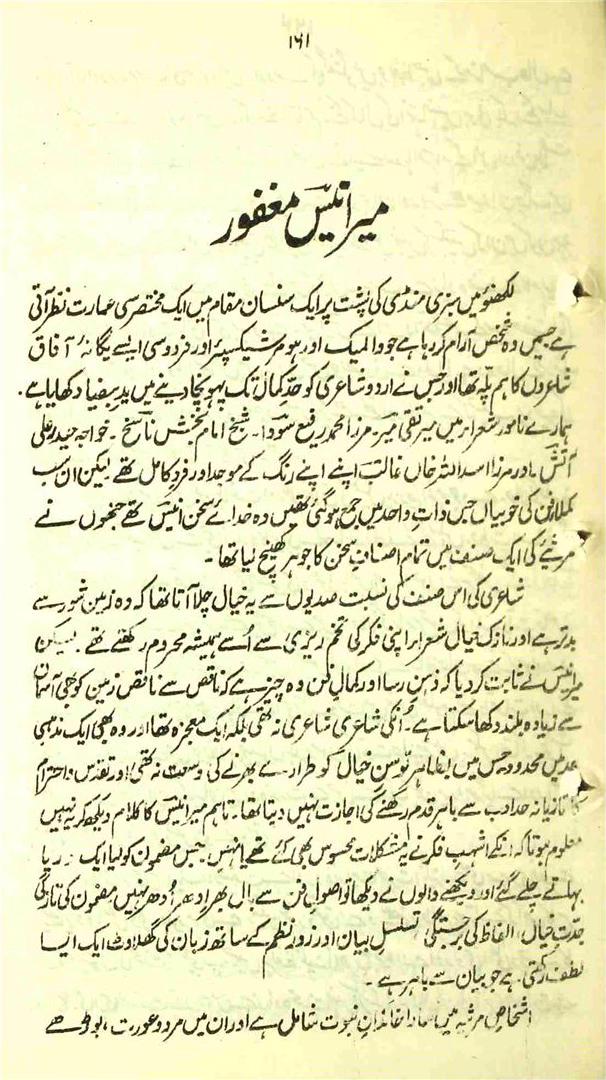 ۱۶۱
میر انیسؔ مغفور
لکھنؤ میں سبزی منڈی کی پشت پر ایک سنسان مقام میں ایک مختصر سی عمارت نظر آتی
ہے جسمیں وہ شخص آرام کر رہا ہے جو والمیک اور ہومر شیکسپئر اور فردوسی ایسے یگانۂ آفاق
شاعروں کا ہم پلّہ تھا اور جس نے اردو شاعری کو حدِّ کمال تک پہونچا دینے میں یدِ بیضا دکھایا ہے۔
ہمارے نامور شعراء میں میر تقی میرؔ۔ مرزا محمد رفیع سوداؔ۔ شیخ امام بخش ناسخؔ۔ خواجہ حیدر علی
آتشؔ۔ اور مرزا اسد اللہ خاں غالبؔ اپنے اپنے رنگ کے موجد اور فردِ کامل تھے لیکن ان سب
کملائے فن کی خوبیاں جس ذاتِ واحد میں جمع ہو گئی تھیں وہ خدائے سخن انیسؔ تھے جنھوں نے
مرثیے کی ایک صنف میں تمام اصنافِ سخن کا جوہر کھینچ لیا تھا۔
شاعری کی اس صنف کی نسبت صدیوں سے یہ خیال چلا آتا تھا کہ وہ زمین شور سے
بدتر ہے اور نازک خیال شعراء اپنی فکر کی تخم ریزی سے اُسے ہمیشہ محروم رکھتے تھے۔ لیکن
میر انیسؔ نے ثابت کر دیا کہ ذہنِ رسا اور کمالِ فن وہ چیز ہے کہ ناقص سے ناقص زمین کو بھی آسمان
سے زیادہ بلند دکھا سکتا ہے۔ انکی شاعری شاعری نہ تھی بلکہ ایک معجزہ تھا اور وہ بھی ایک مذہبی
حد میں محدود جس میں بظاہر توسنِ خیال کو طرارے بھرنے کی وسعت نہ تھی اور تقدس و احترام
کا تازیانہ حدِ ادب سے باہر قدم رکھنے کی اجازت نہیں دیتا تھا۔ تاہم میر انیسؔ کا کلام دیکھ کر یہ نہیں
معلوم ہوتا کہ انکے اشہبِ فکر نے یہ مشکلات محسوس بھی کئے تھے یا نہیں۔ جس مضمون کو لیا ایک دریا
بہاتے چلے گئے اور دیکھنے والوں نے دیکھا تو اصولِ فن سے بال بھر ادھر اُدھر نہیں مضمون کی تازگی
جدّتِ خیال۔ الفاظ کی برجستگی تسلسلِ بیان اور زورِ نظم کے ساتھ زبان کی گھلاوٹ ایک ایسا
لطف رکھتی ہے جو بیان سے باہر ہے۔
اشخاصِ مرثیہ میں سارا خاندانِ نبوت شامل ہے اور ان میں مرد و عورت، بوڑھے